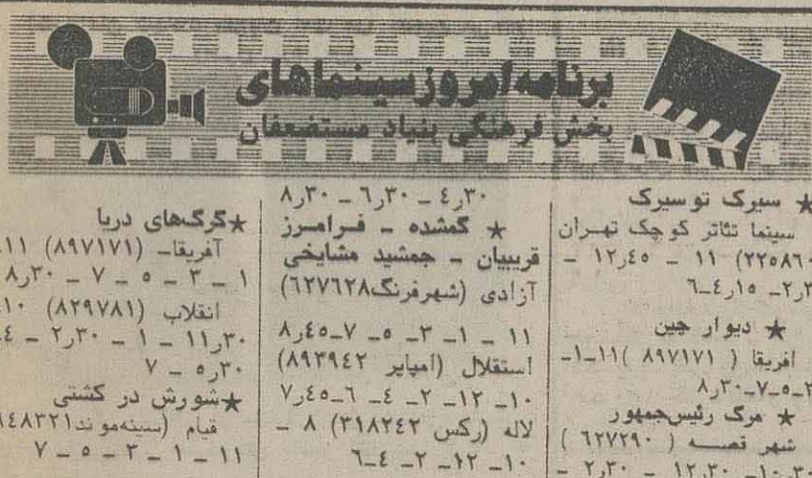 برنامه امروز سینماهای
بخش فرهنگی بنیاد مستضعفان
★ سیرک تو سیرک
سینما تئاتر کوچک تهران
(۲۲۵۸۶۰ ۱۱ - ۱۲٫۴۵ -
۲٫۳ - ۴٫۱۵ - ۶
★ دیوار چین
افریقا ( ۸۹۷۱۷۱ )۱۱-۱-
۳-۵-۷-۸٫۳۰
★ مرگ رئیس‌جمهور
شهر قصه ( ۶۲۷۲۹۰ )
۱۰٫۳۰ - ۱۲٫۳۰ - ۲٫۳۰ -
۴٫۳۰ - ۶٫۳۰ - ۸٫۳۰
★ گمشده - فرامرز
قریبیان - جمشید مشایخی
آزادی (شهرفرنگ۶۲۷۶۲۸)
۱۱ - ۱- ۳- ۵- ۷-۸٫۴۵
استقلال (امپایر ۸۹۳۹۴۲)
۱۰- ۱۲- ۲- ۴- ۶-۷٫۴۵
لاله (رکس ۳۱۸۲۴۲) ۸ -
۱۰- ۱۲- ۲- ۴-۶
★گرگ‌های دریا
آفریقا- (۸۹۷۱۷۱) ۱۱-
۱ - ۳ - ۵ - ۷ - ۸٫۳۰
انقلاب (۸۲۹۷۸۱) ۱۰-
۱۱٫۳۰ - ۱ - ۲٫۳۰ - ۴-
۵٫۳۰ - ۷
★شورش در کشتی
قیام (سینه‌موند۶۴۸۳۲۱
۱۱ - ۱ - ۳ - ۵ - ۷